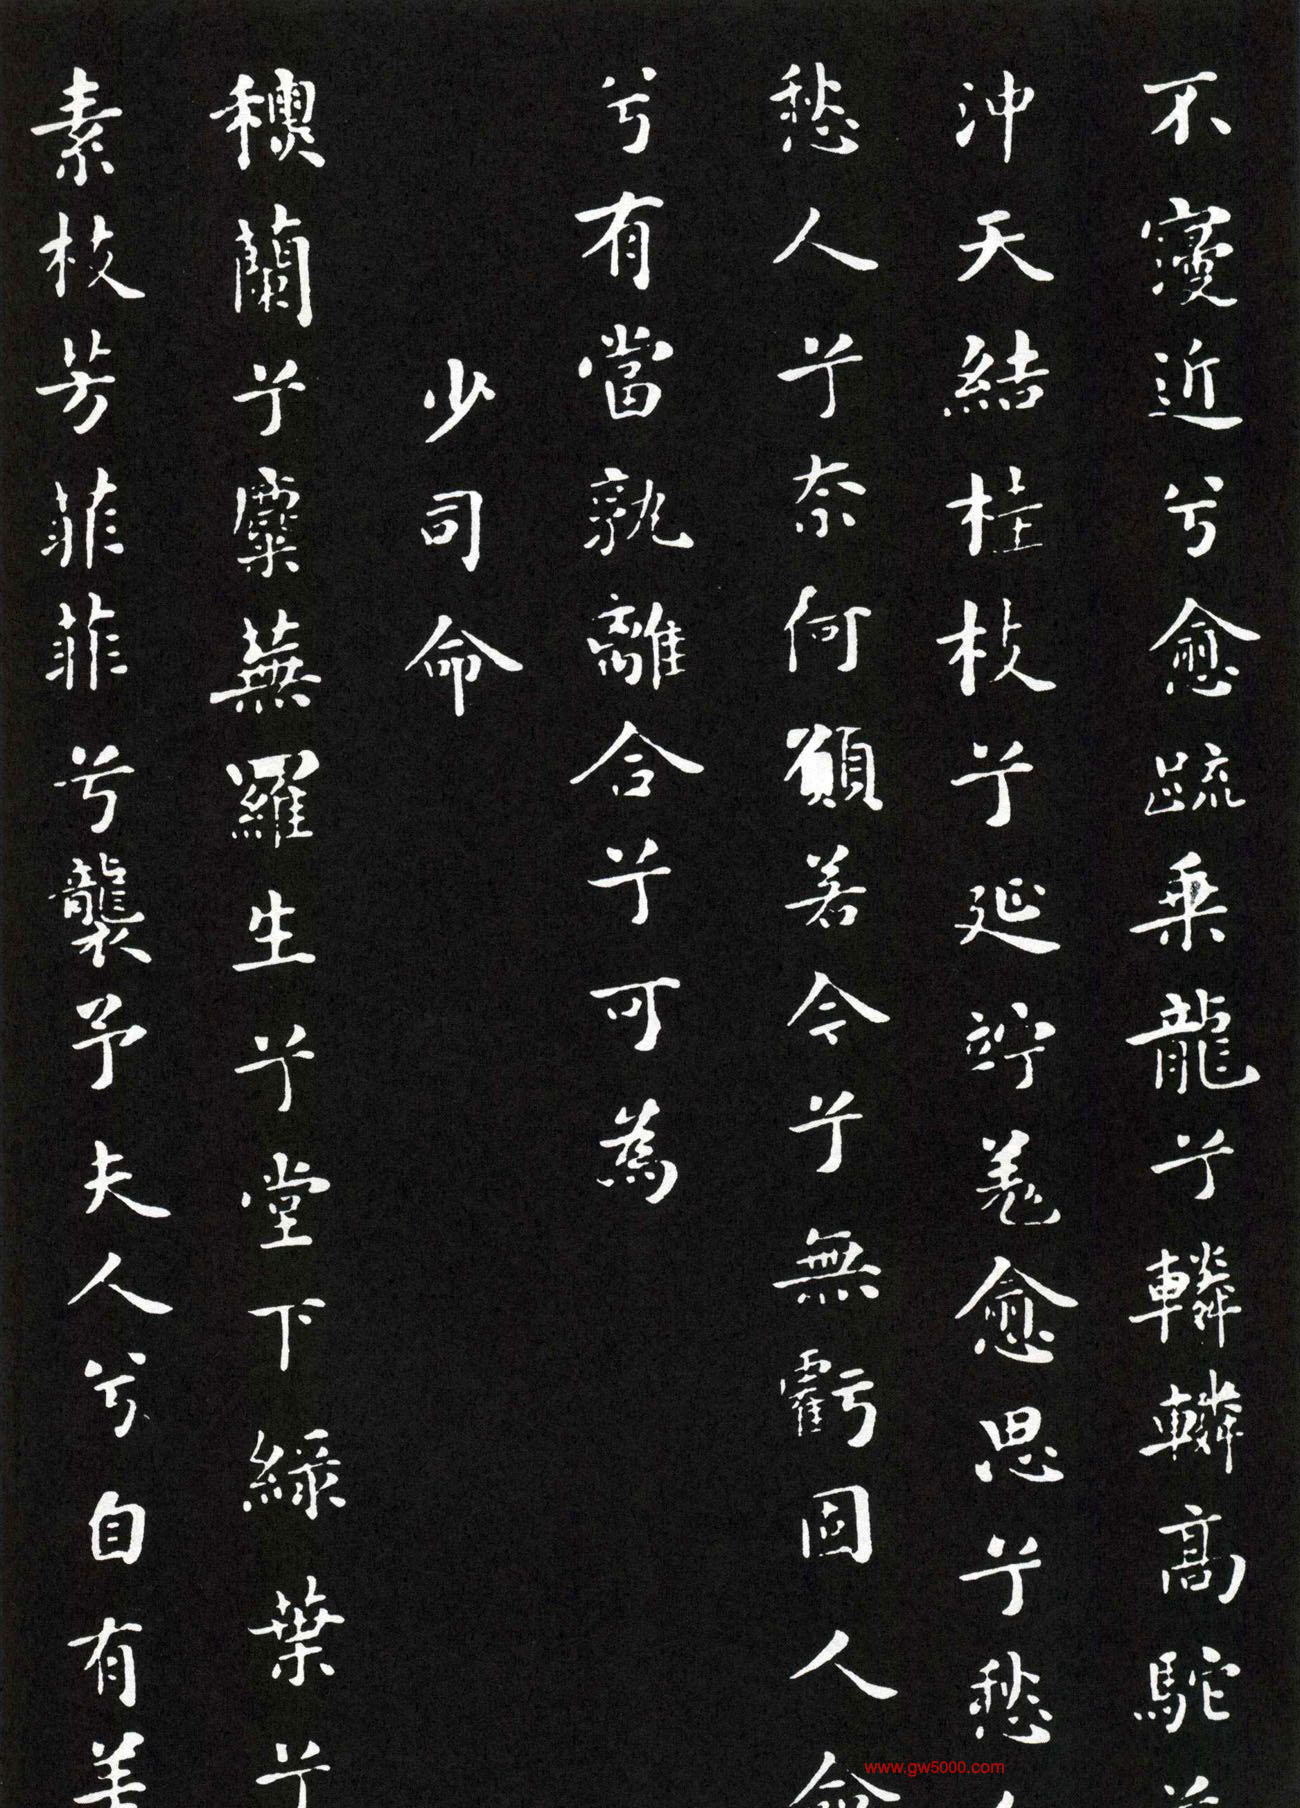 不寖近兮愈踈乗龍兮轔轔高駝
沖天結桂枝兮延竚羌愈思兮愁
愁人兮奈何願若今兮無虧固人
兮有當孰離合兮可為
少司命
穮蘭兮麋蕪羅生兮堂下綠葉兮
素枝芳菲菲兮襲予夫人兮自有美
www.gw5000.com